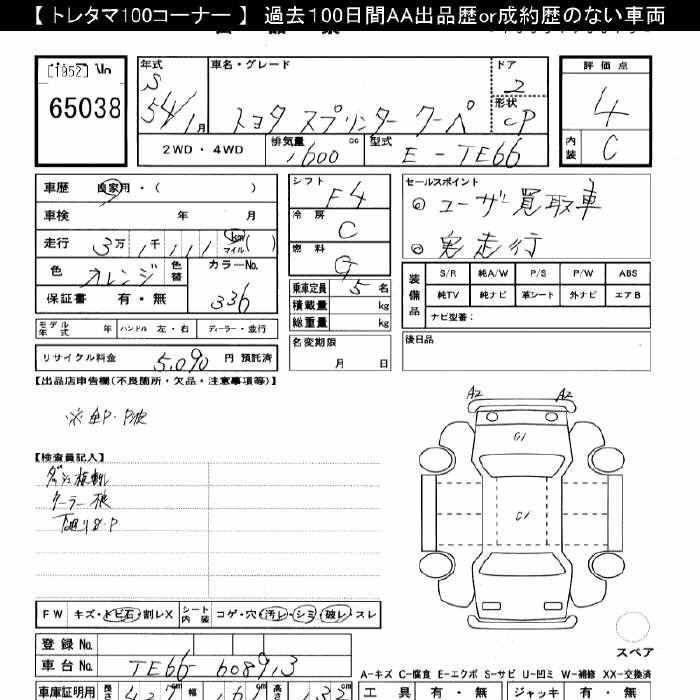 【 トレタマ100コーナー 】 過去100日間AA出品歴or成約歴のない車両
[1952] No
65038
年式
S 54/1月
車名・グレード
トヨタ スプリンター クーペ
ドア
2
形状
CP
評価点
4
内装
C
2WD・4WD
排気量
1600 cc
型式
E-TE66
車歴 自家用・( )
車検 年 月
走行 3万 1千 1 1 1 km マイル ( )
色 オレンジ 色替
カラーNo.
336
保証書 有・無
モデル年式 年 ハンドル 左・右 ディーラー・並行
リサイクル料金 5,090 円 預託済
シフト
F4
冷房
C
燃料
G
乗車定員 5 名
積載量 kg
総重量 kg
名変期限
月 日
セールスポイント
◎ユーザー買取車
◎実走行
装備品
S/R 純A/W P/S P/W ABS
純TV 純ナビ 革シート 外ナビ エアB
ナビ型番:
後日品
【出品店申告欄(不良箇所・欠品・注意事項等)】
【検査員記入】
クーラー
A2 A2
G1
G1
スペア
FW キズ・トビ石・割レX シート内装 コゲ・穴・汚レ・シミ・破レ・スレ
登録 No.
車台 No. TE66-608913
A-キズ C-腐食 E-エクボ S-サビ U-凹ミ W-補修 XX-交換済
車庫証明用 長さ cm 幅 cm 高さ cm
工具 有・無 ジャッキ 有・無